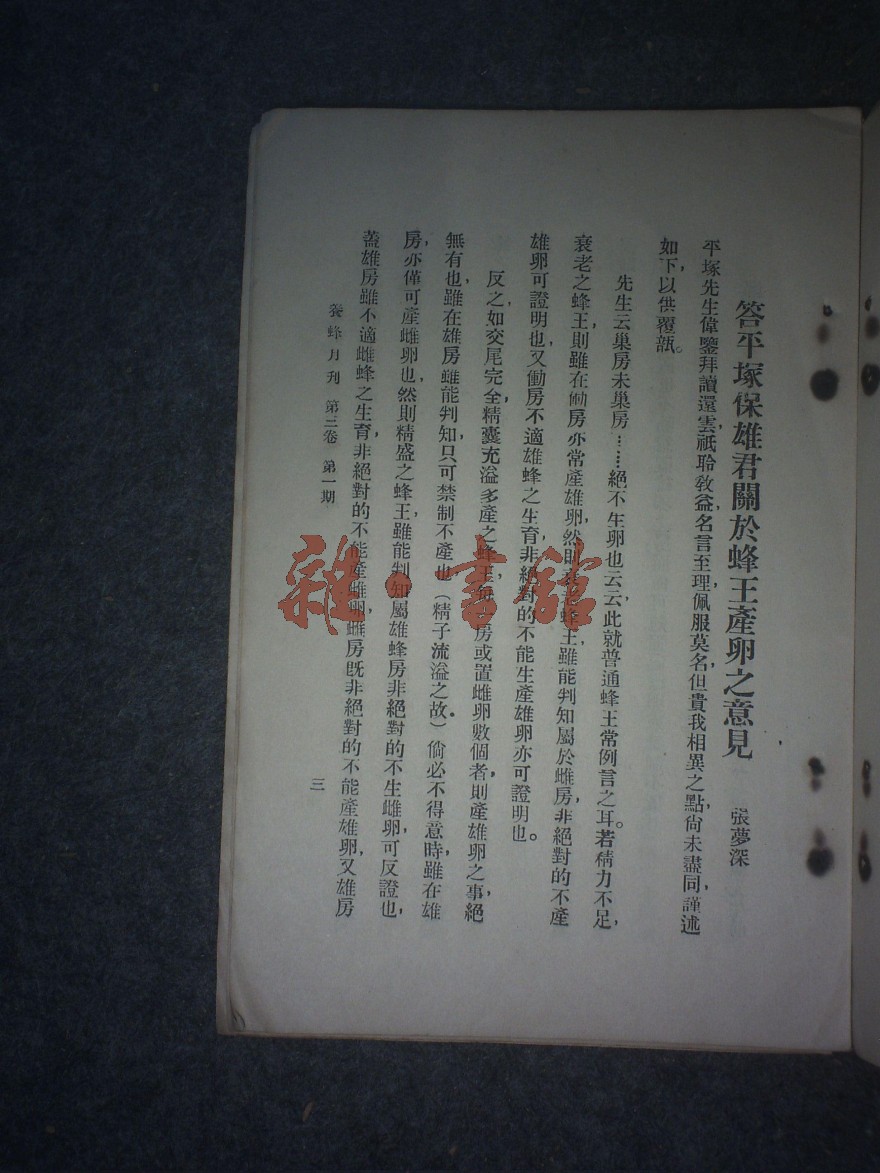 答平塚保雄君關於蜂王產卵之意見
張夢深
平塚先生偉鑒拜讀還雲，祇聆敎益名言至理佩服莫名，但貴我相異之點，尙未盡同，謹述
如下，以供覆瓿。
先生云巢房未巢房……絕不生卵也云云此就普通蜂王常例言之耳。若精力不足，
衰老之蜂王，則雖在働房亦常產雄卵，然則衰老蜂王，雖能判知屬於雌房，非絕對的不產
雄卵可證明也，又働房不適雄蜂之生育，非絕對的不能生產雄卵亦可證明也。
反之，如交尾完全，精囊充溢多產之蜂王，每一房或置雌卵數個者，則產雄卵之事絕
無有也，雖在雄房雖能判知，只可禁制不產也（精子流溢之故）倘必不得意時，雖在雄
房，亦僅可產雌卵也，然則精盛之蜂王，雖能判知屬雄蜂房，非絕對的不生雌卵，可反證也，
蓋雄房雖不適雌蜂之生育，非絕對的不能產雌卵，雌房既非絕對的不能產雄卵，又雄房
養蜂月刊 第三卷 第一期
三
雜·書館